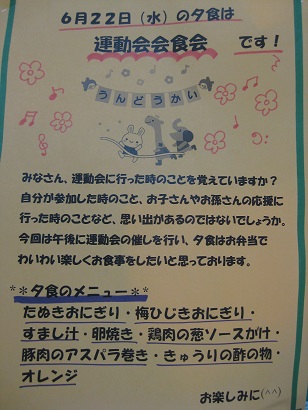 6月22日(水)の夕食は
運動会会食会 です!
うんどうかい
みなさん、運動会に行った時のことを覚えていますか?
自分が参加した時のこと、お子さんやお孫さんの応援に
行った時のことなど、思い出があるのではないでしょうか。
今回は午後に運動会の催しを行い、夕食はお弁当で
わいわい楽しくお食事をしたいと思っております。
**夕食のメニュー**
たぬきおにぎり・梅ひじきおにぎり・
すまし汁・卵焼き・鶏肉の葱ソースがけ・
豚肉のアスパラ巻き・きゅうりの酢の物・
オレンジ
お楽しみに(^^)